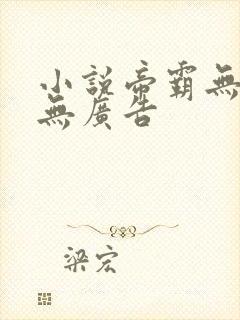 小說帝霸無
無廣告
梁宏